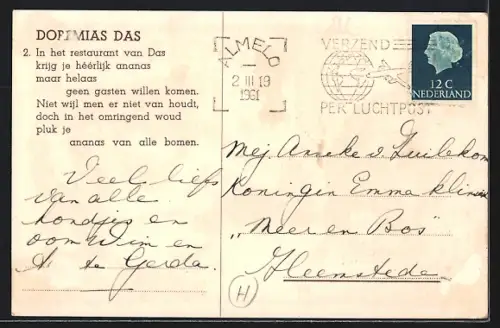 DOREMIAS DAS
2. In het restaurant van Das
krijg je héérlijk ananas
maar helaas
geen gasten willen komen.
Niet wijl men er niet van houdt,
doch in het omringend woud
pluk je
ananas van alle bomen.
Veel liefs
van alle
hondjes en
oom Wim en
te Gerda.
ALMELO
2 III 19
1961
VERZEND
PER LUCHTPOST
12 C
NEDERLAND
Mej. Anneke v. Zuilekom
Koningin Emma kliniek
"Meer en Bos"
Heemstede
H